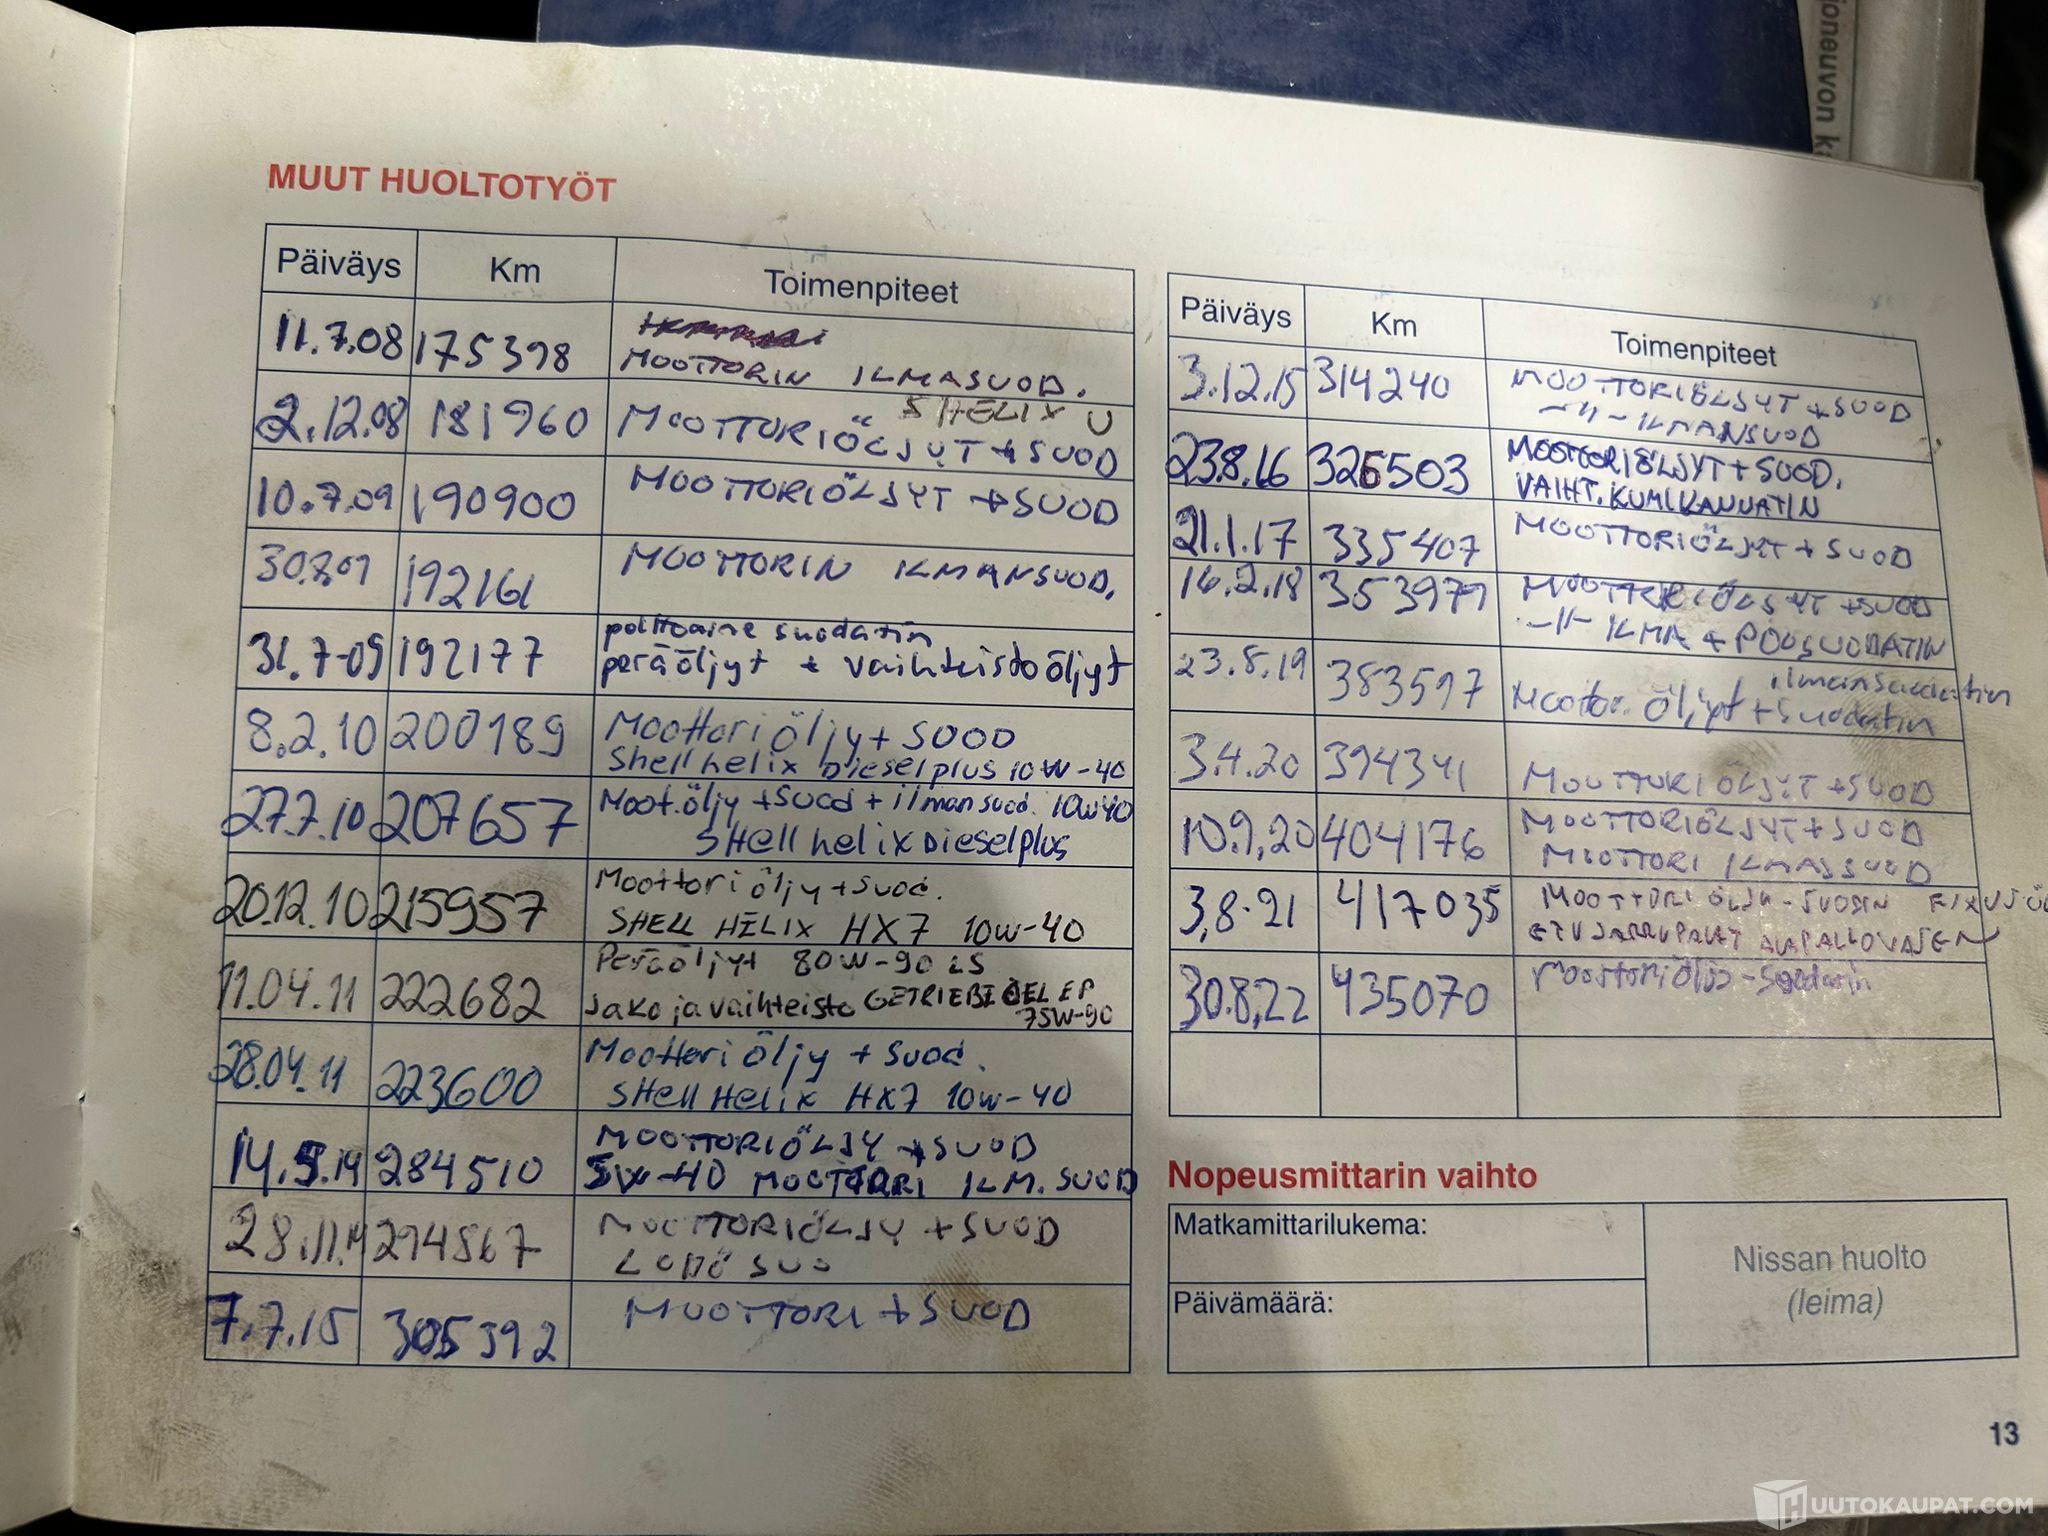 ioneuvon ka
MUUT HUOLTOTYÖT
Päiväys Km Toimenpiteet
11.7.08 175398 MOOTTORIN ILMASUOD.
2.12.08 181960 SHELIX U
MOOTTORIÖLJYT + SUOD
10.7.09 190900 MOOTTORIÖLJYT + SUOD
192161 MOOTTORIN ILMANSUOD.
31.7-09 192177 polttoaine suodatin
peräöljyt + vaihteistoöljyt
8.2.10 200189 Moottoriöljy + SUOD
Shell helix Dieselplus 10W-40
27.7.10 207657 Moot.öljy + Suod + ilmansuod. 10W40
SHell helix Dieselplus
20.12.10 215957 Moottoriöljy + Suod.
SHELL HELIX HX7 10W-40
11.04.11 222682 Peräöljyt 80W-90 LS
Jako ja vaihteisto GETRIEBEOEL EP
75W-90
28.04.11 223600 Moottoriöljy + Suod.
SHell Helix HX7 10W-40
14.5.14 284510 MOOTTORIÖLJY + SUOD
5W-40 MOOTTORI ILM. SUOD
28.11.14 294867 MOOTTORIÖLJY + SUOD
7.7.15 305392 MUOTTORI + SUOD
Päiväys Km Toimenpiteet
3.12.15 314240 MOOTTORIÖLJYT + SUOD
-11- ILMANSUOD
23.8.16 326503 MOOTTORIÖLJYT + SUOD.
VAIHT. KUMIKANNATIN
21.1.17 335407 MOOTTORIÖLJYT + SUOD
353979 MOOTTORIÖLJYT + SUOD
-11- ILMA + POOSUODATIN
23.8.19 383597 ilmansuodatin
Moottor. öljyt + suodatin
3.4.20 394341 MOUTTORIÖLJYT + SUOD
10.9.20 404176 MOOTTORIÖLJYT + SUOD
MOOTTORI ILMASSUOD
3.8.21 417035 MOOTTORI ÖLJY-
ETUJARRUPALAT ALAPALLO VASEN
30.8.22 435070 Moottoriöljy -
Nopeusmittarin vaihto
Matkamittarilukema:
Päivämäärä:
Nissan huolto
(leima)
13
HUUTOKAUPAT.COM